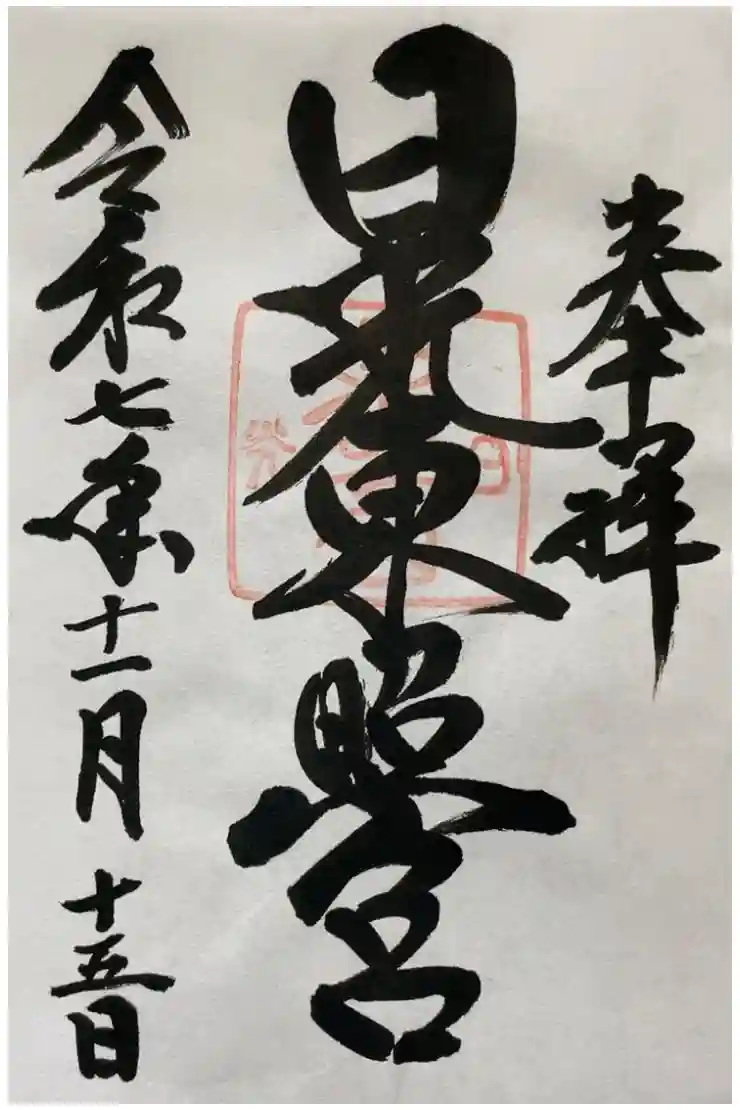 奉拝
日光東照宮
令和七年十一月十五日